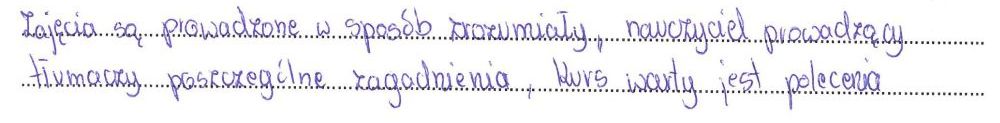 Zajęcia są prowadzone w sposób zrozumiały, nauczyciel prowadzący
tłumaczy poszczególne zagadnienia, kurs warty jest polecenia